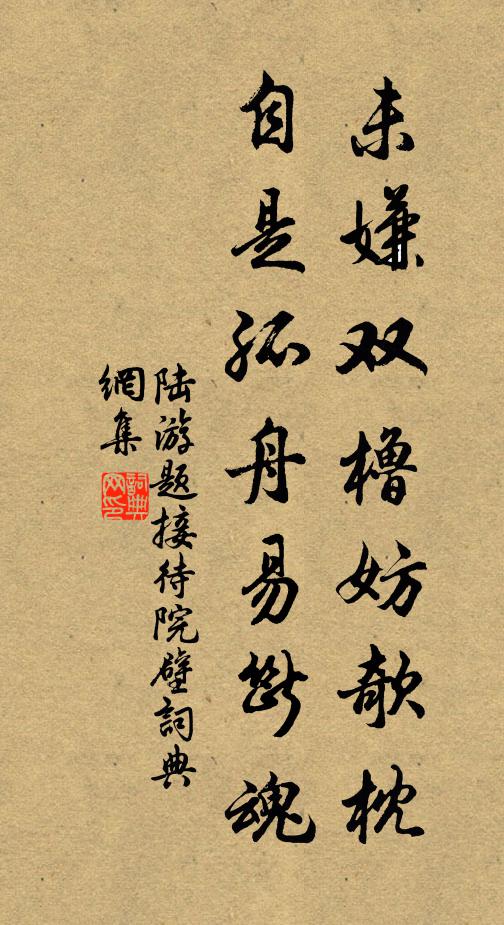 未嫌双橹妨欹枕
自是孤舟易断魂
陆游题接待院壁词典
網集
詞典网印